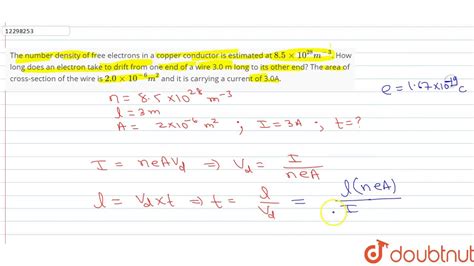 12298253
The number density of free electrons in a copper conductor is estimated at 8.5 × 10²⁸ m⁻³. How
long does an electron take to drift from one end of a wire 3.0 m long to its other end? The area of
cross-section of the wire is 2.0 × 10⁻⁶ m² and it is carrying a current of 3.0A.
n = 8.5×10²⁸ m⁻³
e = 1.67×10⁻¹⁹ C
l = 3m
A = 2×10⁻⁶ m² ; I = 3A ; t = ?
I = neAVd ⇒ Vd = I/neA
l = Vd × t ⇒ t = l/Vd = l(neA)/I
doubtnut